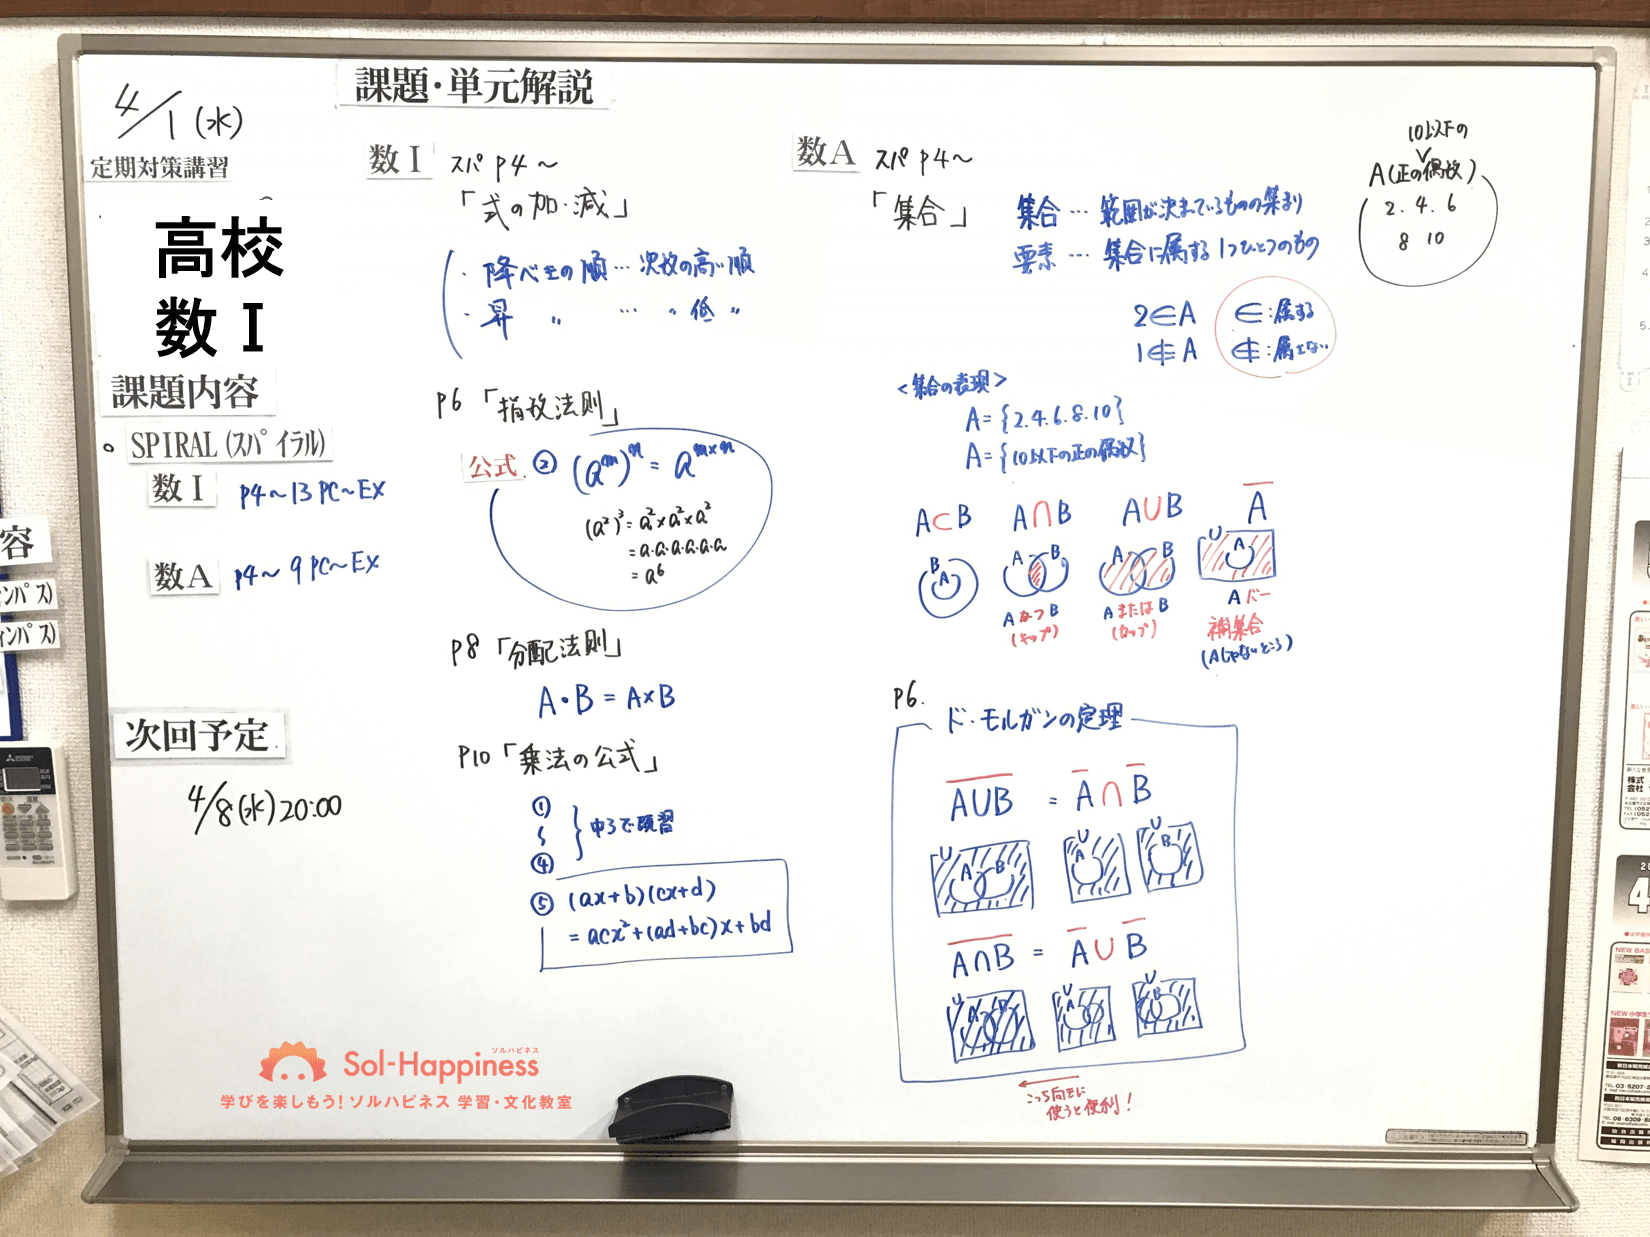 課題・単元解説
4/1(水)
定期対策講習
高校
数Ⅰ
課題内容
SPIRAL(スパイラル)
数Ⅰ P4～13 PC～EX
数A P4～9 PC～EX
次回予定
4/8(水)20:00
数Ⅰ スパ P4～
「式の加・減」
・降べきの順…次数の高い順
・昇 〃 … 〃 低 〃
P6「指数法則」
公式 ② (aᵐ)ⁿ = aᵐˣⁿ
(a²)³ = a²×a²×a²
= a・a・a・a・a・a
= a⁶
P8「分配法則」
A・B = A×B
P10「乗法の公式」
①
〜
④
中3で既習
⑤ (ax+b)(cx+d)
= acx²+(ad+bc)x+bd
数A スパ P4～
「集合」
集合…範囲が決まっているものの集まり
要素…集合に属する1つひとつのもの
10以下の
A(正の偶数)
2. 4. 6
8 10
2∈A ∈:属する
1∉A ∉:属さない
<集合の表現>
A={2.4.6.8.10}
A={10以下の正の偶数}
A⊂B A∩B A∪B A̅
B A
A B
A B
U A
AかつB
(キャップ)
AまたはB
(カップ)
Aバー
補集合
(Aじゃないところ)
P6.
ド・モルガンの定理
A̅∪̅B̅ = A̅∩B̅
U A B
U A
U B
A̅∩̅B̅ = A̅∪B̅
U A B
U A
U B
こっち向きに
使うと便利!
ソルハピネス
Sol-Happiness
学びを楽しもう! ソルハピネス 学習・文化教室
容
ィンパス)
ィンパス)
株式
会社
NEW BAS
NEW 小学生